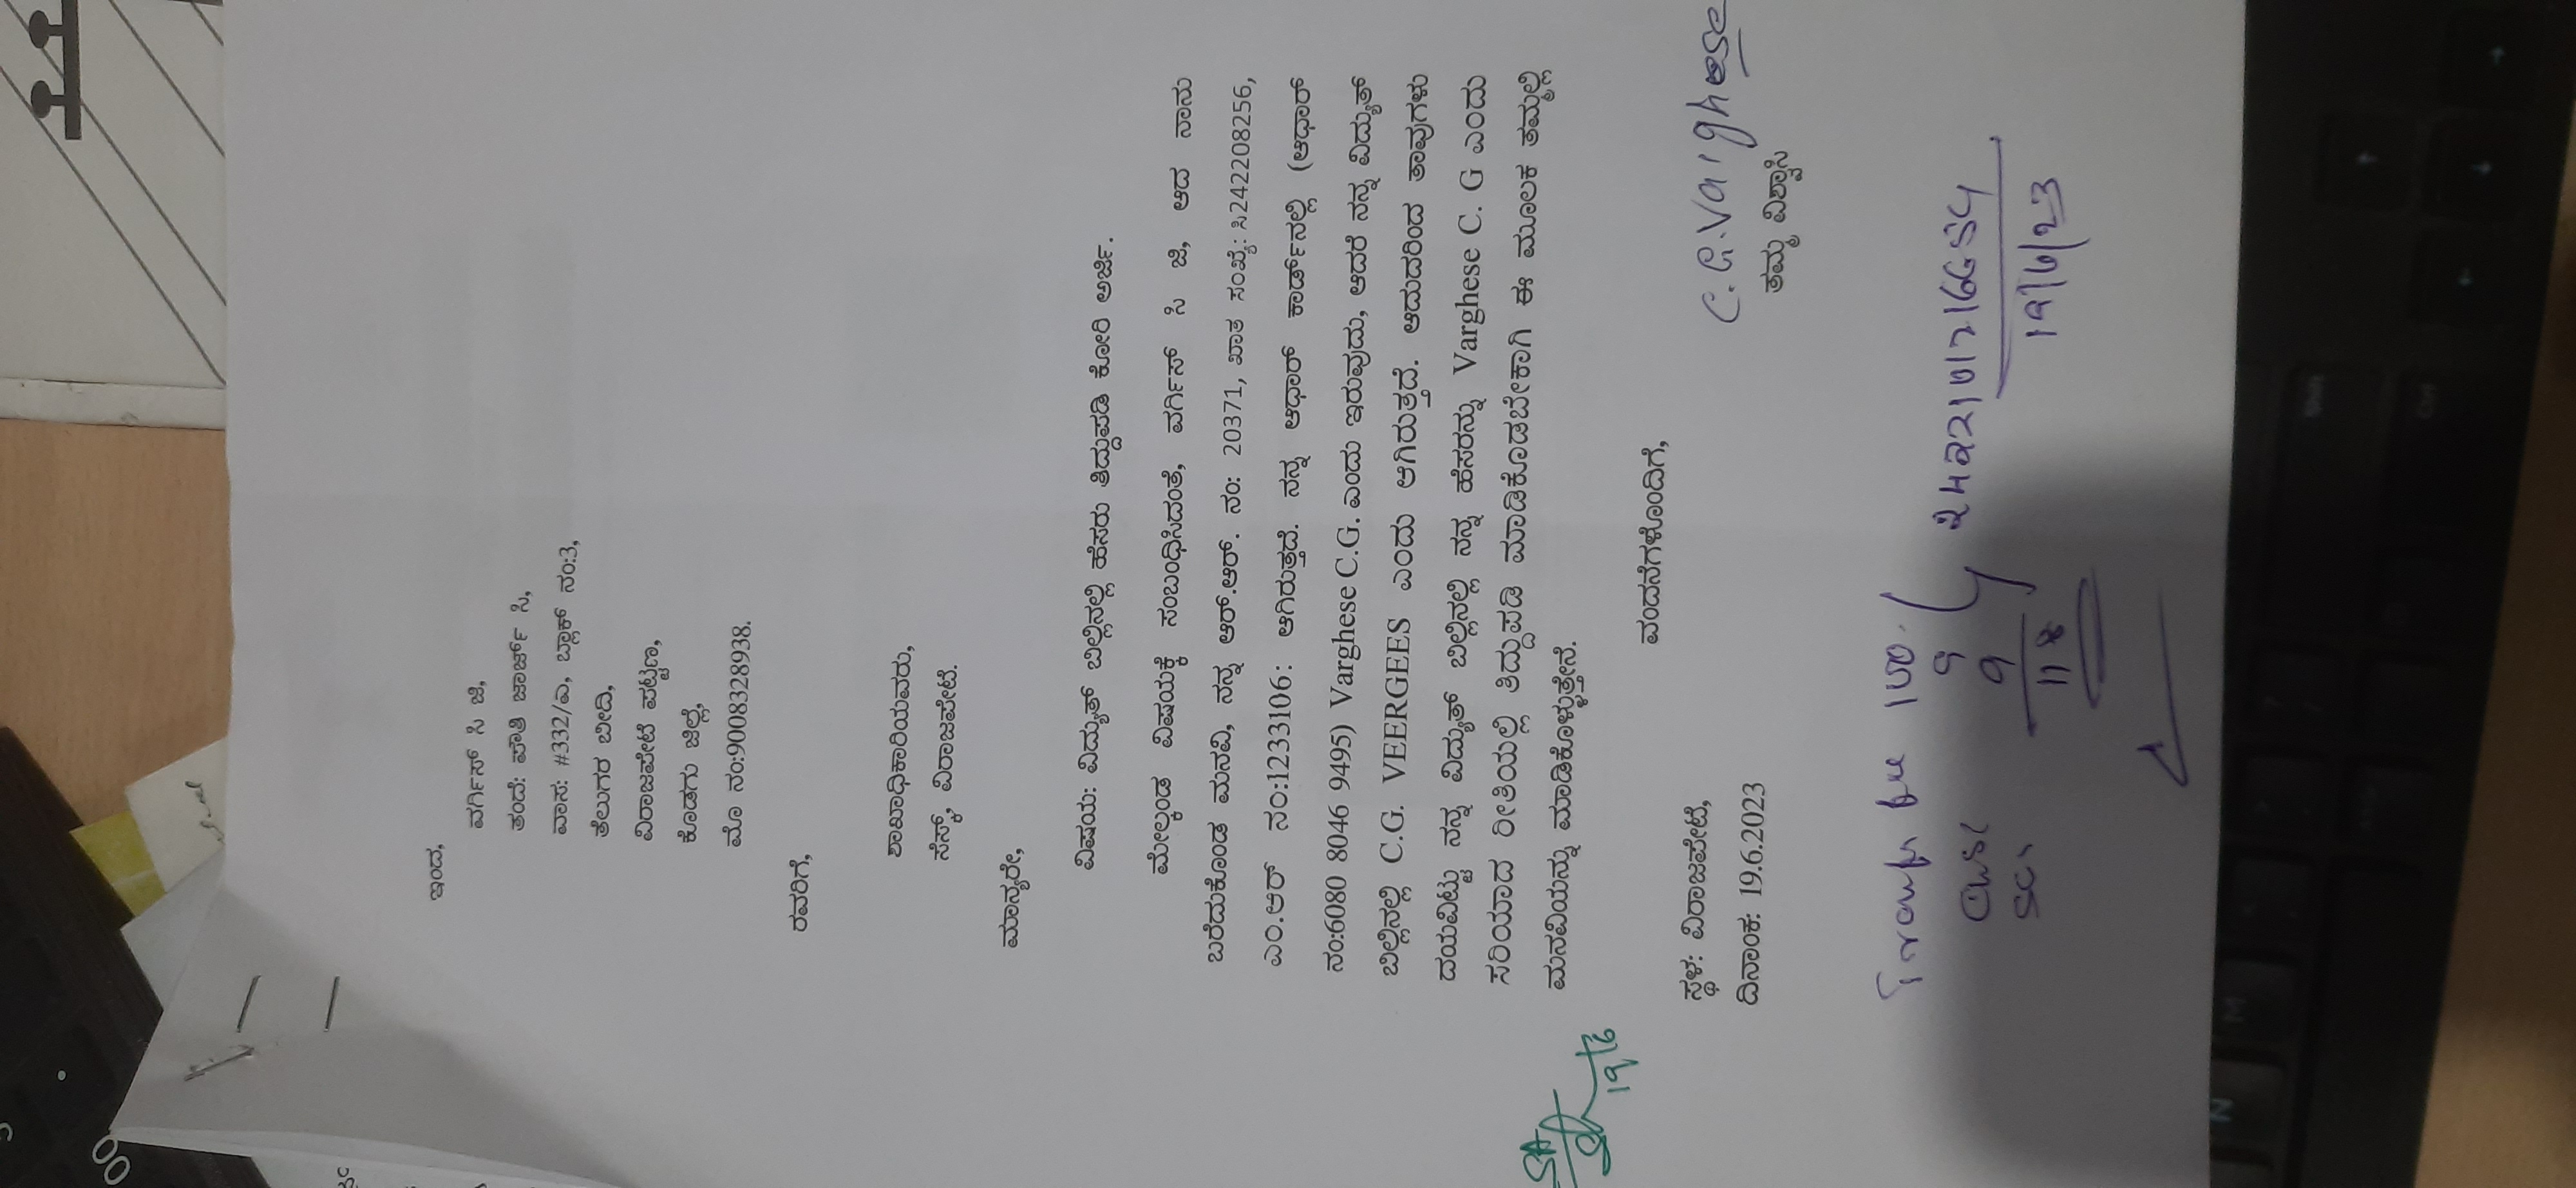 ಇಂದ,
ವರ್ಗೀಸ್ ಸಿ ಜಿ,
ತಂದೆ: ಪಾತಿ ಜಾರ್ಜ್ ಸಿ,
ವಾಸ: #332/ಎ, ಬ್ಲಾಕ್ ನಂ:3,
ತೆಲುಗರ ಬೀದಿ,
ವಿರಾಜಪೇಟೆ ಪಟ್ಟಣ,
ಕೊಡಗು ಜಿಲ್ಲೆ,
ಮೊ ನಂ:9008328938.
ರವರಿಗೆ,
ಶಾಖಾಧಿಕಾರಿಯವರು,
ಸೆಸ್ಕ್, ವಿರಾಜಪೇಟೆ.
ಮಾನ್ಯರೇ,
ವಿಷಯ: ವಿದ್ಯುತ್ ಬಿಲ್ಲಿನಲ್ಲಿ ಹೆಸರು ತಿದ್ದುಪಡಿ ಕೋರಿ ಅರ್ಜಿ.
ಮೇಲ್ಕಂಡ ವಿಷಯಕ್ಕೆ ಸಂಬಂಧಿಸಿದಂತೆ, ವರ್ಗೀಸ್ ಸಿ ಜಿ, ಆದ ನಾನು
ಬರೆದುಕೊಂಡ ಮನವಿ, ನನ್ನ ಆರ್.ಆರ್. ನಂ: 20371, ಖಾತ ಸಂಖ್ಯೆ: ಸಿ2422208256,
ಎಂ.ಆರ್ ನಂ:1233106: ಆಗಿರುತ್ತದೆ. ನನ್ನ ಆಧಾರ್ ಕಾರ್ಡ್‌ನಲ್ಲಿ (ಆಧಾರ್
ನಂ:6080 8046 9495) Varghese C.G. ಎಂದು ಇರುವುದು, ಆದರೆ ನನ್ನ ವಿದ್ಯುತ್
ಬಿಲ್ಲಿನಲ್ಲಿ C.G. VEERGEES ಎಂದು ಆಗಿರುತ್ತದೆ. ಆದುದರಿಂದ ತಾವುಗಳು
ದಯವಿಟ್ಟು ನನ್ನ ವಿದ್ಯುತ್ ಬಿಲ್ಲಿನಲ್ಲಿ ನನ್ನ ಹೆಸರನ್ನು Varghese C. G ಎಂದು
ಸರಿಯಾದ ರೀತಿಯಲ್ಲಿ ತಿದ್ದುಪಡಿ ಮಾಡಿಕೊಡಬೇಕಾಗಿ ಈ ಮೂಲಕ ತಮ್ಮಲ್ಲಿ
ಮನವಿಯನ್ನು ಮಾಡಿಕೊಳ್ಳುತ್ತೇನೆ.
ವಂದನೆಗಳೊಂದಿಗೆ,
ಸ್ಥಳ: ವಿರಾಜಪೇಟೆ,
ದಿನಾಂಕ: 19.6.2023
C.G.Varghese
ತಮ್ಮ ವಿಶ್ವಾಸಿ
19/6
100
9
9
118
19/6/23